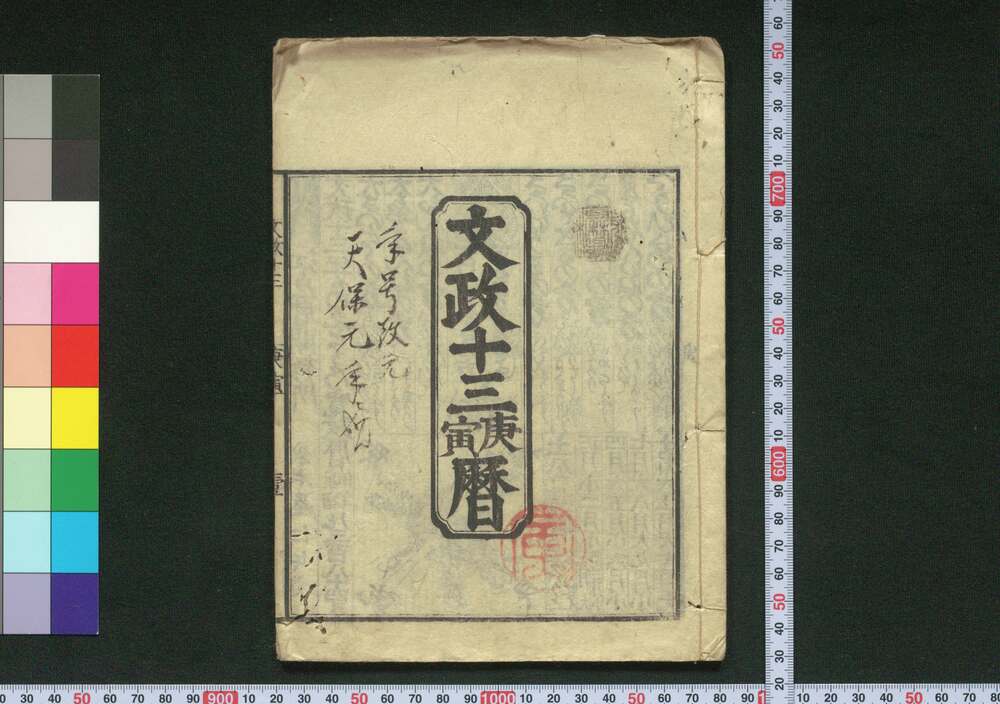 文政十三庚寅暦
年号改元
天保元年ト
文政十三
庚寅
壹
60
50
40
30
20
10
700
90
80
70
60
50
40
30
20
10
600
90
80
70
60
50
40
30
20
20 30 40 50 60 70 80 90 900 10 20 30 40 50 60 70 80 90 1000 10 20 30 40 50 60 70 80 90 10 20 30 40 50 60 70